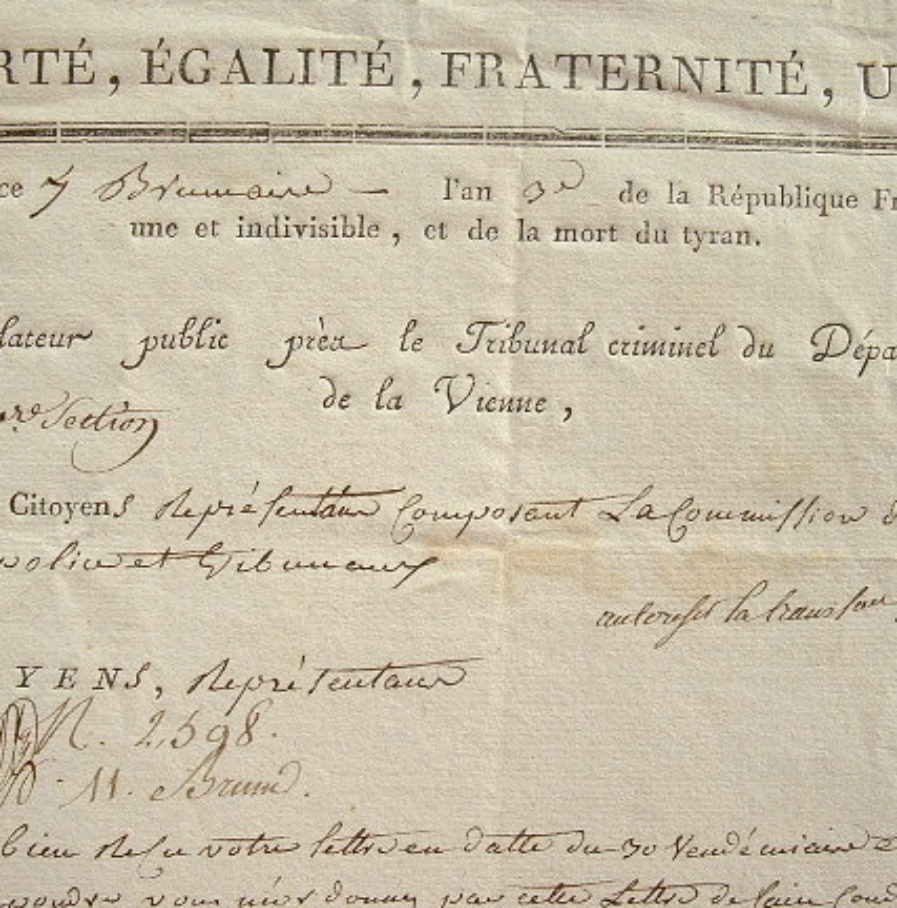 RTÉ, ÉGALITÉ, FRATERNITÉ, U
ce 7 Brumaire — l'an 3e de la République Fr
une et indivisible, et de la mort du tyran.
lateur public près le Tribunal criminel du Dépa
de la Vienne,
Section
Citoyens Représentans Composant La Commission d
police et Tribunaux
YENS, Représentans
N. 2,598.
11. Brum.
bien Reçu votre lettre en datte du 30 Vendémiaire
vous par cette Lettre de faire